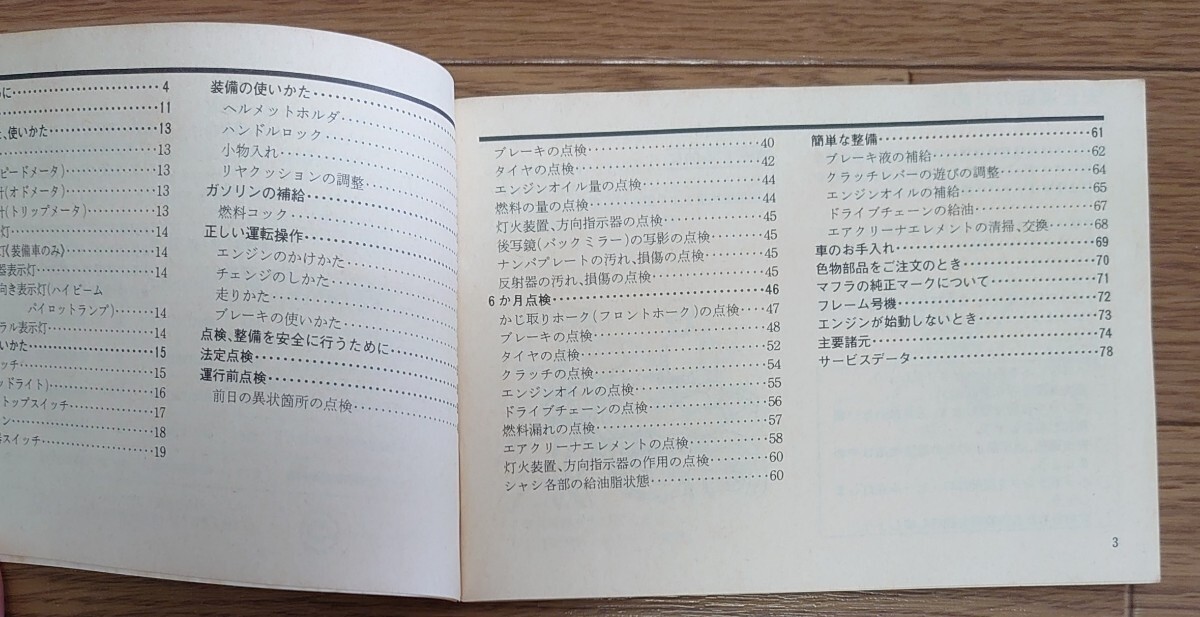 に‥‥‥‥‥‥‥‥‥‥‥‥ 4
‥‥‥‥‥‥‥‥‥‥‥‥ 11
使いかた‥‥‥‥‥‥‥‥‥‥ 13
‥‥‥‥‥‥‥‥‥‥‥‥ 13
ピードメータ)‥‥‥‥‥‥‥ 13
(オドメータ)‥‥‥‥‥‥‥ 13
(トリップメータ)‥‥‥‥‥ 13
灯‥‥‥‥‥‥‥‥‥‥‥ 14
(装備車のみ)‥‥‥‥‥‥‥ 14
器表示灯‥‥‥‥‥‥‥‥‥ 14
向き表示灯(ハイビーム
パイロットランプ)‥‥‥‥ 14
ラル表示灯‥‥‥‥‥‥‥‥ 14
いかた‥‥‥‥‥‥‥‥‥‥ 15
ッチ‥‥‥‥‥‥‥‥‥‥ 15
ッドライト)‥‥‥‥‥‥‥‥ 16
トップスイッチ‥‥‥‥‥‥‥ 17
ン‥‥‥‥‥‥‥‥‥‥‥ 18
スイッチ‥‥‥‥‥‥‥‥‥ 19
装備の使いかた‥‥‥‥‥‥‥
ヘルメットホルダ‥‥‥‥‥‥
ハンドルロック‥‥‥‥‥‥‥
小物入れ‥‥‥‥‥‥‥‥‥
リヤクッションの調整‥‥‥‥
ガソリンの補給‥‥‥‥‥‥‥
燃料コック‥‥‥‥‥‥‥‥
正しい運転操作‥‥‥‥‥‥‥
エンジンのかけかた‥‥‥‥‥
チェンジのしかた‥‥‥‥‥‥
走りかた‥‥‥‥‥‥‥‥‥
ブレーキの使いかた‥‥‥‥‥
点検、整備を安全に行うために‥‥
法定点検‥‥‥‥‥‥‥‥‥
運行前点検‥‥‥‥‥‥‥‥
前日の異状箇所の点検‥‥‥‥
ブレーキの点検‥‥‥‥‥‥‥ 40
タイヤの点検‥‥‥‥‥‥‥‥ 42
エンジンオイル量の点検‥‥‥‥ 44
燃料の量の点検‥‥‥‥‥‥‥ 44
灯火装置、方向指示器の点検‥‥‥ 45
後写鏡(バックミラー)の写影の点検‥‥ 45
ナンバプレートの汚れ、損傷の点検‥‥ 45
反射器の汚れ、損傷の点検‥‥‥‥ 45
6か月点検‥‥‥‥‥‥‥‥‥ 46
かじ取りホーク(フロントホーク)の点検‥ 47
ブレーキの点検‥‥‥‥‥‥‥ 48
タイヤの点検‥‥‥‥‥‥‥‥ 52
クラッチの点検‥‥‥‥‥‥‥ 54
エンジンオイルの点検‥‥‥‥‥ 55
ドライブチェーンの点検‥‥‥‥ 56
燃料漏れの点検‥‥‥‥‥‥‥ 57
エアクリーナエレメントの点検‥‥ 58
灯火装置、方向指示器の作用の点検‥‥ 60
シャシ各部の給油脂状態‥‥‥‥ 60
簡単な整備‥‥‥‥‥‥‥‥‥ 61
ブレーキ液の補給‥‥‥‥‥‥ 62
クラッチレバーの遊びの調整‥‥‥ 64
エンジンオイルの補給‥‥‥‥‥ 65
ドライブチェーンの給油‥‥‥‥ 67
エアクリーナエレメントの清掃、交換‥ 68
車のお手入れ‥‥‥‥‥‥‥‥ 69
色物部品をご注文のとき‥‥‥‥ 70
マフラの純正マークについて‥‥‥ 71
フレーム号機‥‥‥‥‥‥‥‥ 72
エンジンが始動しないとき‥‥‥‥ 73
主要諸元‥‥‥‥‥‥‥‥‥‥ 74
サービスデータ‥‥‥‥‥‥‥ 78
3